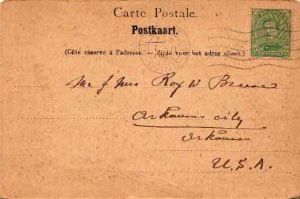 Carte Postale.
Postkaart.
(Côté réservé à l'adresse. — Zijde voor het adres alleen.)
Mr & Mrs Roy W
Arkansas City
Arkansas
U.S.A.